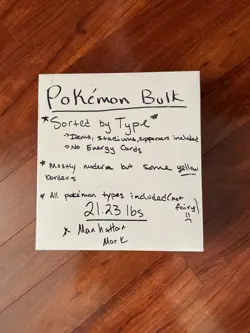 Pokémon Bulk
*Sorted by Type*
→Items, stadiums, supporters included
→No Energy Cards
*Mostly modern but some yellow
borders
*All pokémon types included(not
fairy)
21.23 lbs
* Manhattan
Mark